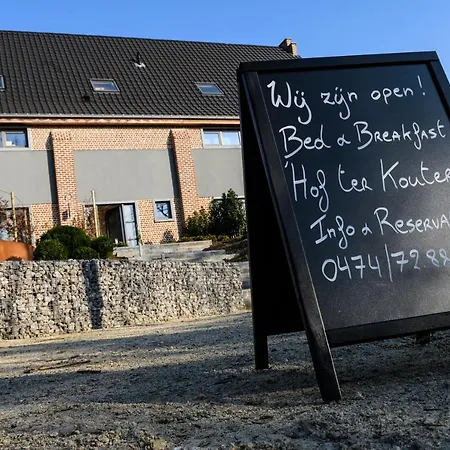 Wij zijn open!
Bed & Breakfast
'Hof ter Kouter
Info & Reserva
0474/72.88